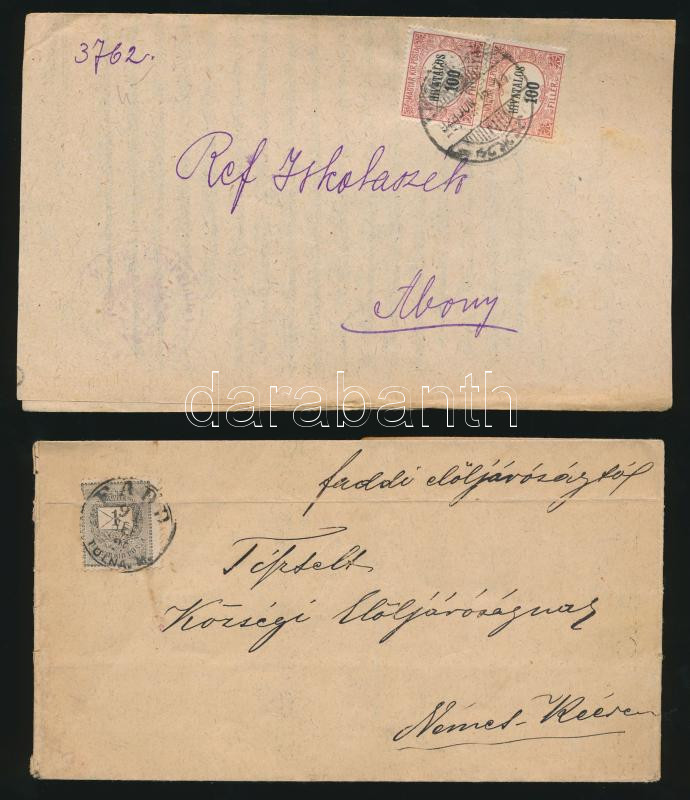 3762.
MAGYAR KIR. POSTA
HIVATALOS
100
HIVATALOS
100
FILLÉR
Ref Iskolaszék
Abony
darabanth
FADD
19
TOLNA. M.
faddi elöljáróságtól
Tisztelt
Községi Elöljáróságnak
Német-